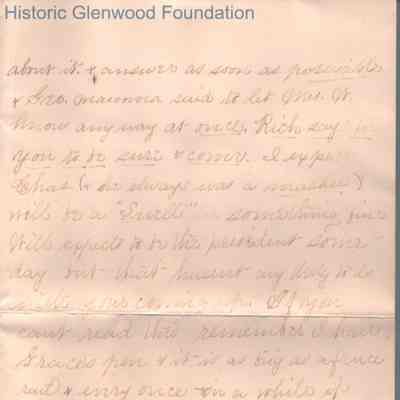 Historic Glenwood Foundation
about it. & answer as soon as possible
& Geo. said to let Mrs. W.
know any way at once. Rich says for
you to be sure & come. I expect
Chas (he always was a masher)
will be a "Swell" or something fine
Will expects to be the president some
day but that hasent any thing to do
with your coming up. If you
cant read this remember I have
Grace's pen & it is as big as a fence
rail & every once in a while it